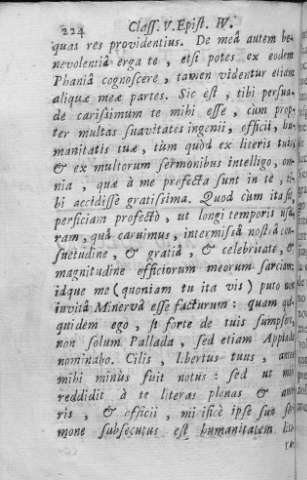 224 Class. V. Epist. W.
quas res providentius. De meâ autem be-
nevolentiâ erga te, etsi potes ex eodem
Phaniâ cognoscere, tamen videntur etiam
aliquæ meæ partes. Sic est, tibi persua-
de carissimum te mihi esse, cùm prop-
ter multas suavitates ingenii, officii, hu-
manitatis tuæ, tùm quòd ex literis tuis,
& ex multorum sermonibus intelligo, om-
nia, quæ à me profecta sunt in te, ti-
bi accidisse gratissima. Quod cùm ita sit,
perficiam profectò, ut longi temporis usu-
ram, quâ caruimus, intermissâ nostrâ con-
suetudine, & gratiâ, & celebritate, &
magnitudine officiorum meorum sarciam:
idque me (quoniam tu ita vis) puto non
invitâ Minervâ esse facturum: quam
quidem ego, si forte de tuis sumpsero,
non solum Pallada, sed etiam Appiada
nominabo. Cilis, libertus tuus, antea
mihi minùs fuit notus: sed ut mihi
reddidit à te literas plenas & amo-
ris, & officii, mirificè ipse suo ser-
mone subsecutus est humanitatem